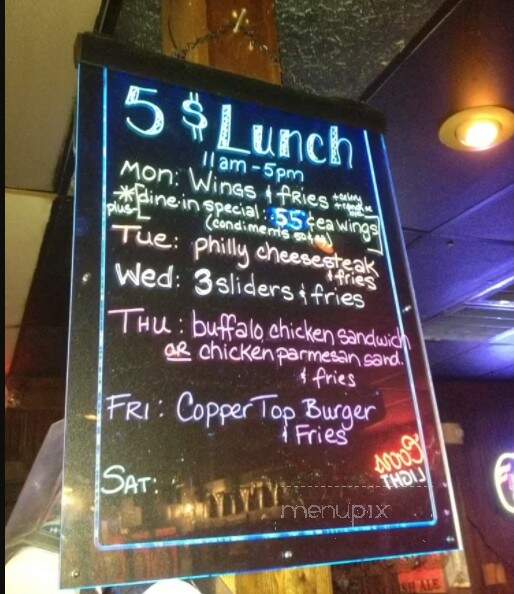 5 $ Lunch
11am - 5pm
Mon: Wings & fries + celery
+ ranch or
* dine-in special: 55¢ ea wings
plus (condiments 50¢ ea)
Tue: philly cheesesteak
& fries
Wed: 3 sliders & fries
Thu: buffalo chicken sandwich
OR chicken parmesan sand.
& fries
Fri: Copper Top Burger
& Fries
Sat:
Coors
LIGHT
menupix
ALE